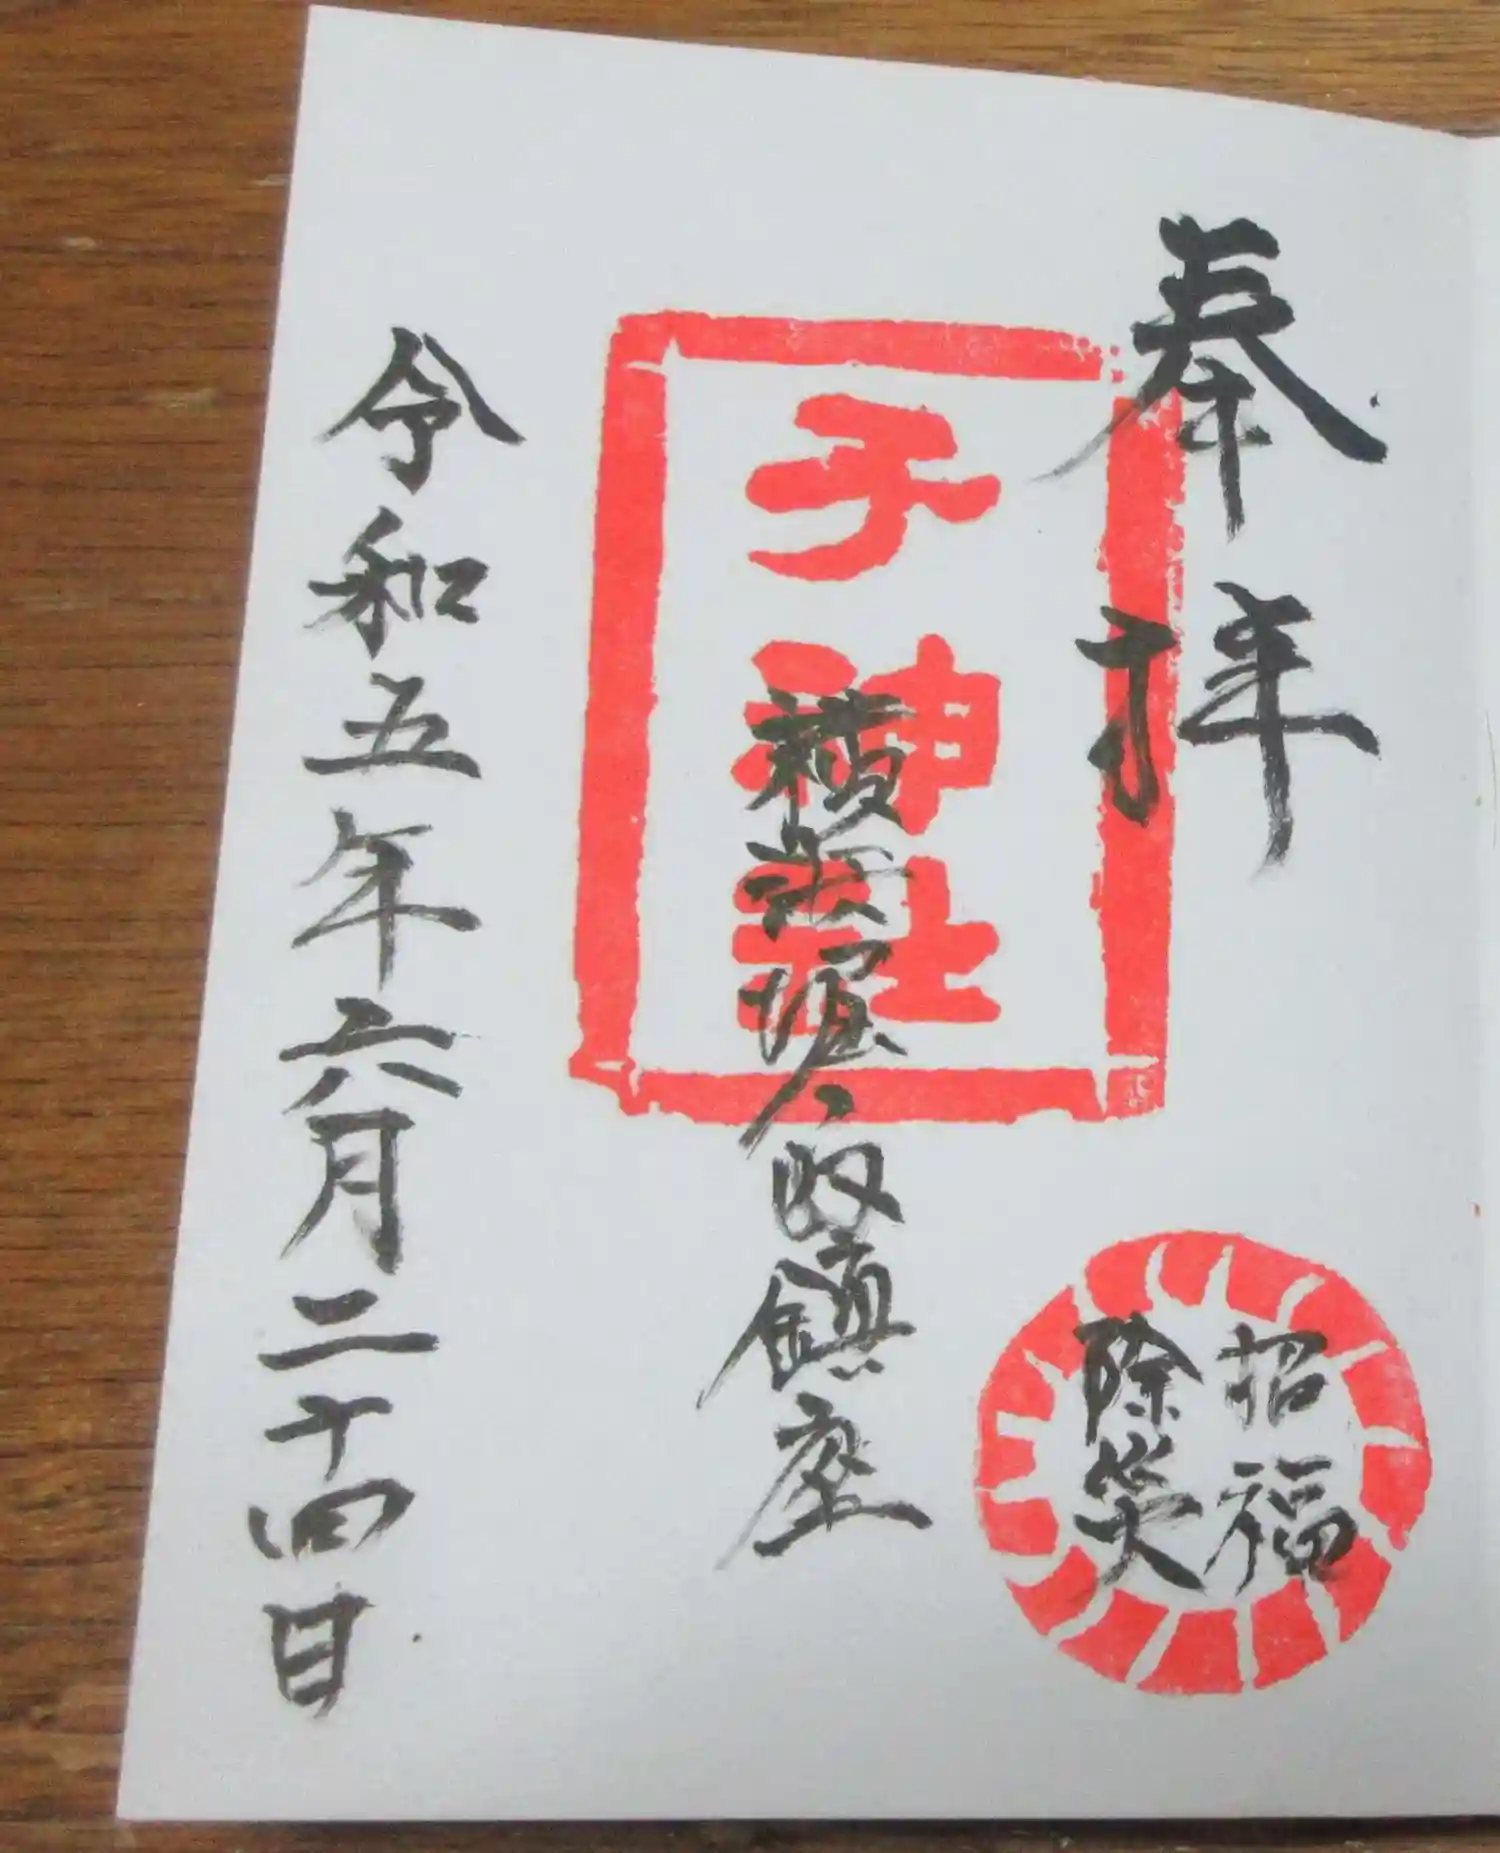 奉拝
招福
除災
子神社
鎮座
令和五年六月二十四日